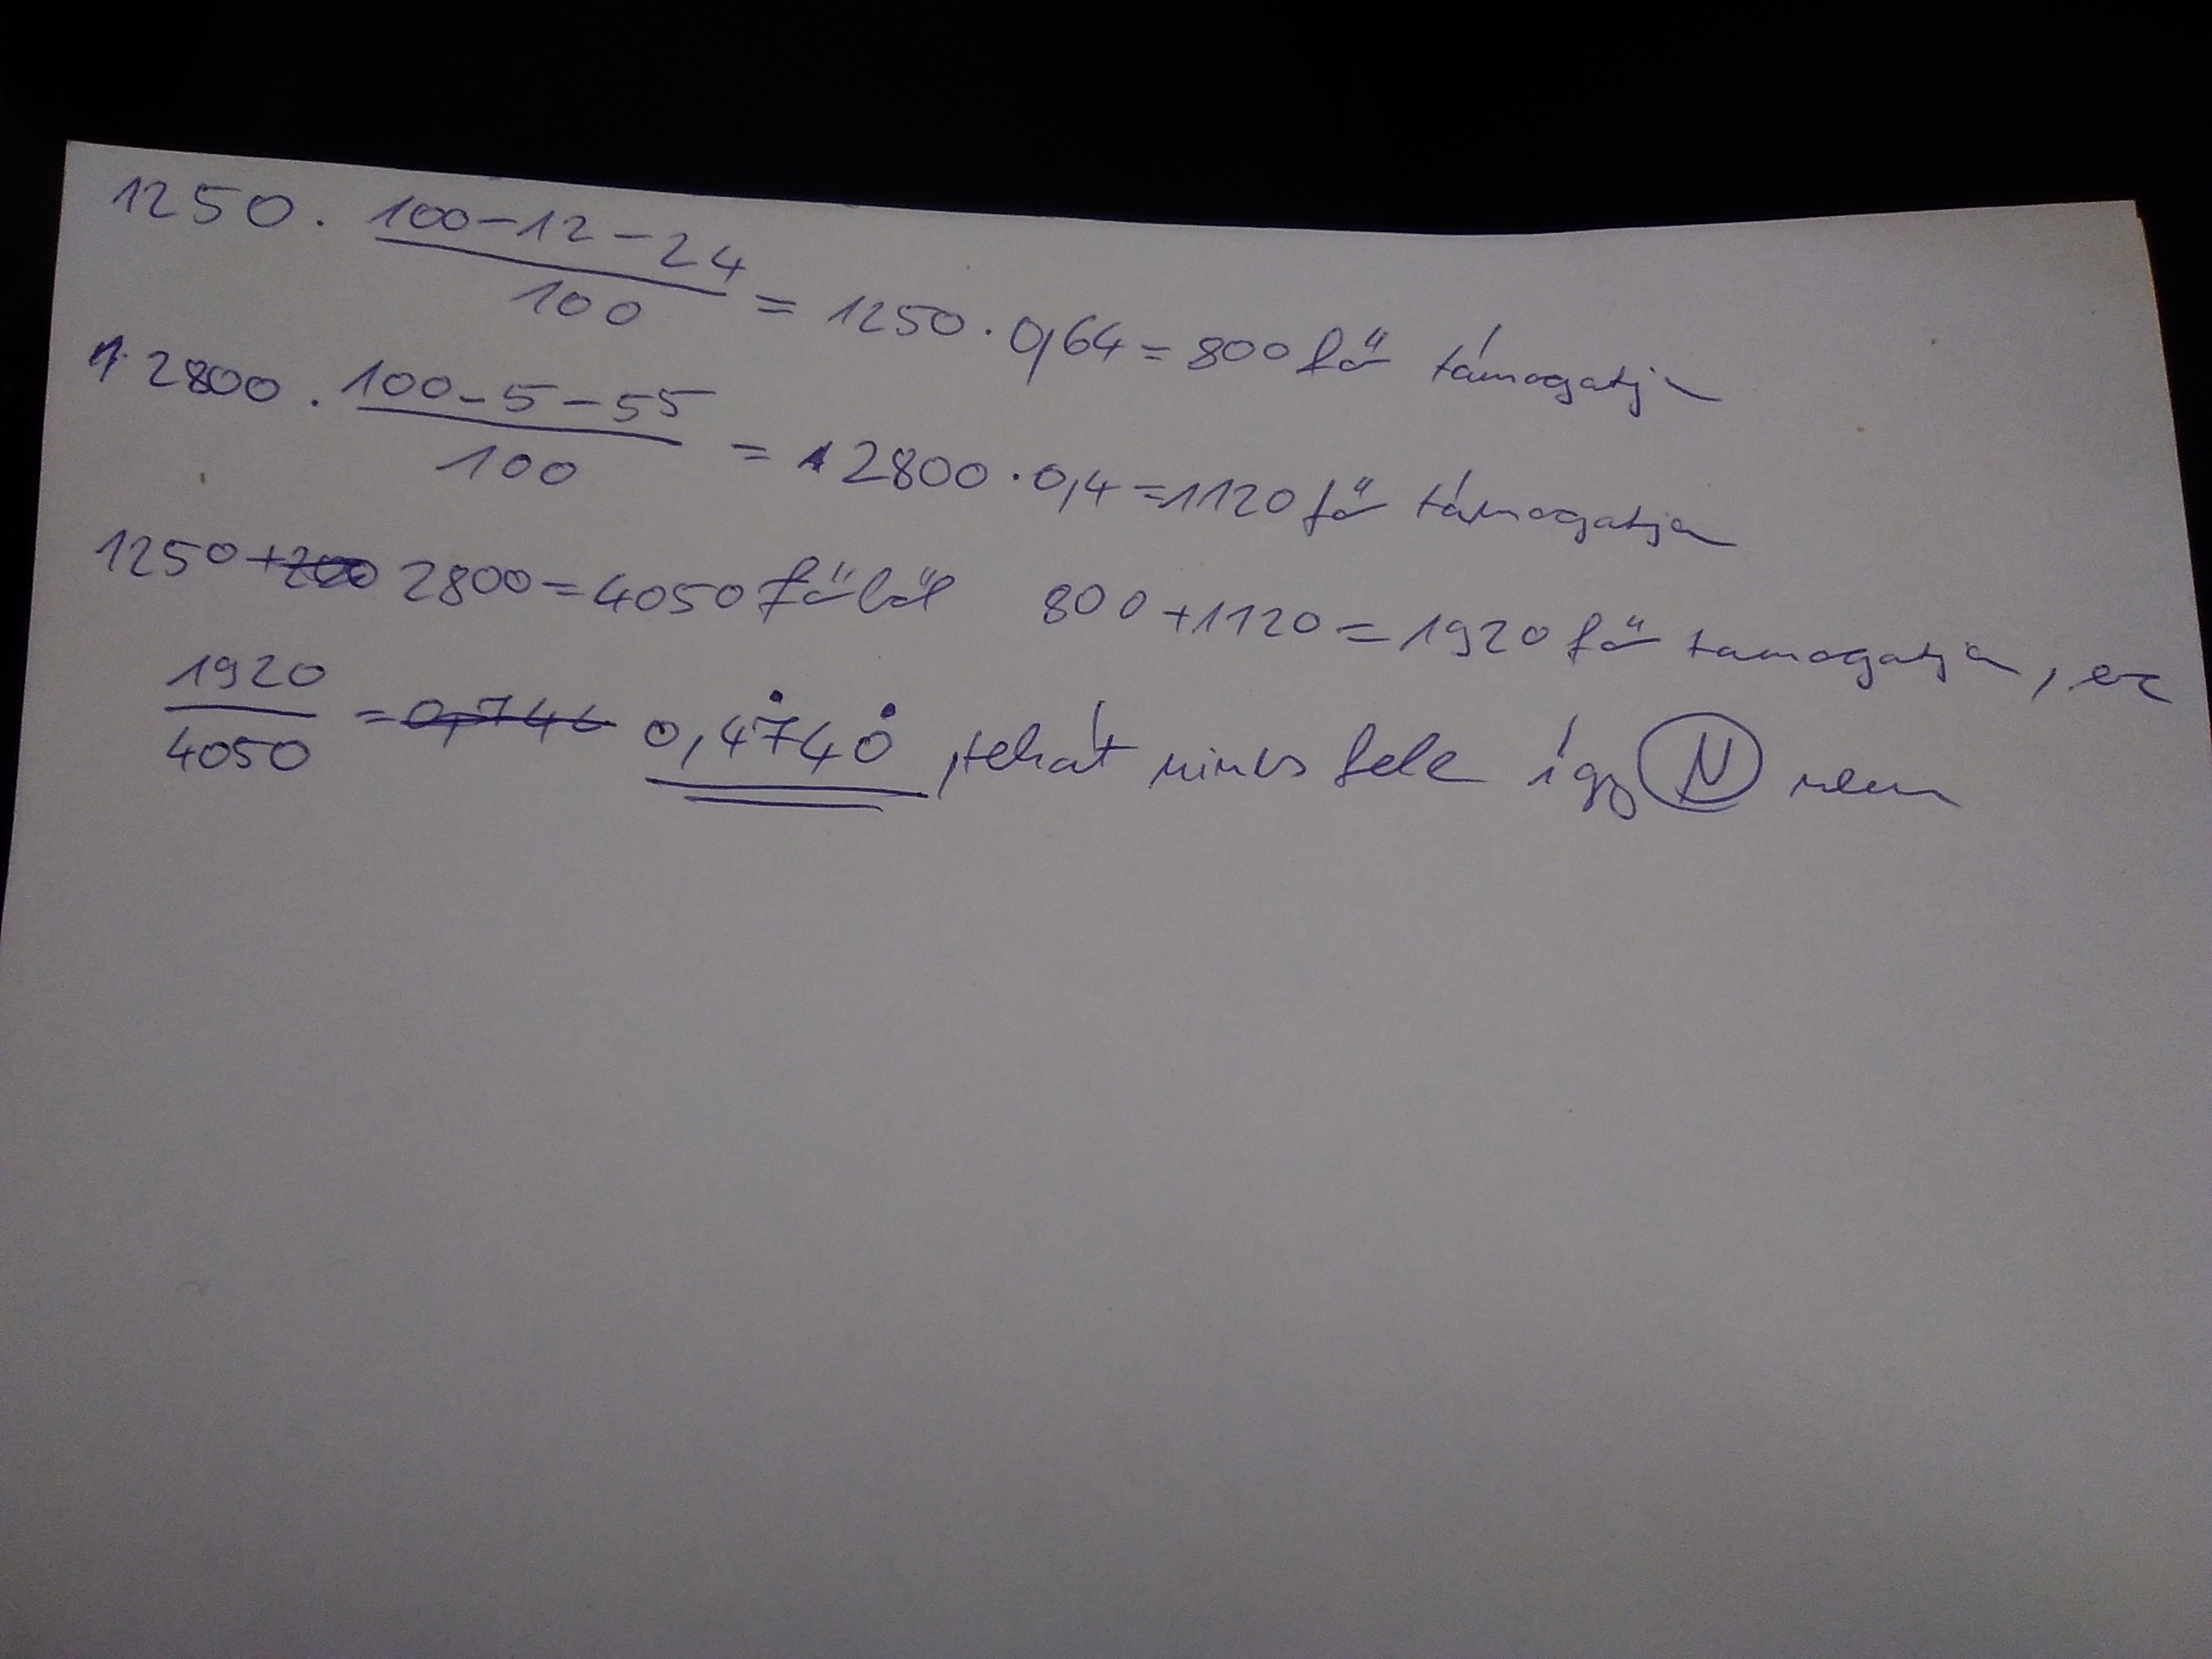 1250 · (100-12-24)/100 = 1250 · 0,64 = 800 fő támogatja
2800 · (100-5-55)/100 = 2800 · 0,4 = 1120 fő támogatja
1250+ 2800=4050 főből 800+1120=1920 fő tamogatja, ez
1920/4050 = 0,47̇40̇ ,tehát nincs fele így N nem